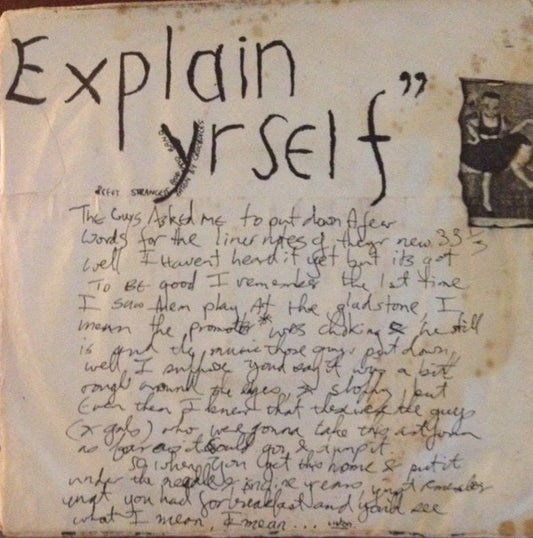 Explain
yrself"
STRANGE
The Guys Asked me to put down A few
words for the liner notes of their new 33⅓
well I Havent heard it yet but its got
To BE good I remember the 1st time
I saw them play At the gladstone, I
mean the promoter * was choking & he still
is and the music those guys put down,
well, I suppose youd say it was a bit
rough around the edges, & sloppy, but
Even then I knew that these were the guys
(x gals) who were gonna take this artform
as far as it could go & jump it.
So when you get this home & put it
under the needle years, you'll remember
what you had for breakfast and you'd see
what I mean, I mean...